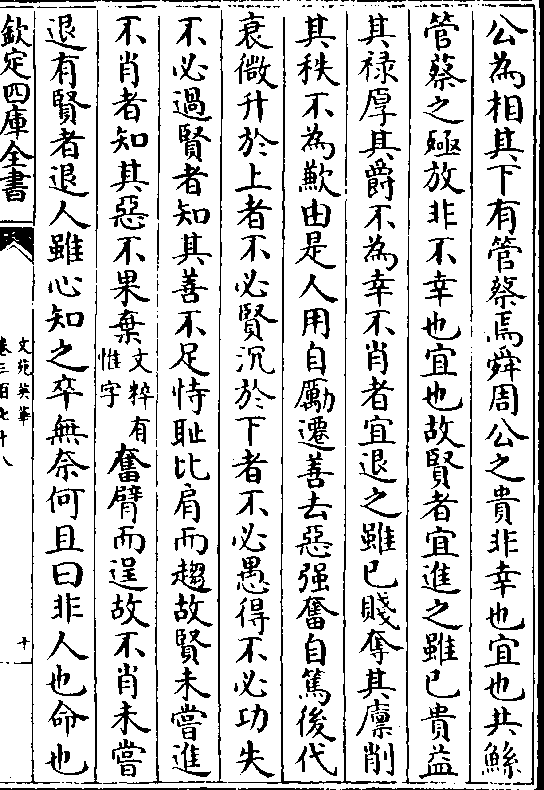 公為相其下有管蔡焉舜周公之貴非幸也宜也共鯀
管蔡之殛放非不幸也宜也故賢者宜進之雖已貴益
其祿厚其爵不為幸不肖者宜退之雖已賤奪其廩削
其秩不為歉由是人用自勵遷善去惡强奮自篤後代
衰微升於上者不必賢沉於下者不必愚得不必功失
不必過賢者知其善不足恃耻比肩而趨故賢未嘗進
不肖者知其惡不果棄文粹有惟字奮臂而逞故不肖未嘗
退有賢者退人雖心知之卒無奈何且曰非人也命也
欽定四庫全書
文苑英華
卷三百七十八
十